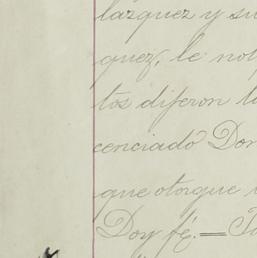 lazquez y su
quez, le not
tos dijeron l
cenciado Don
que otorgue
Doy fé.—